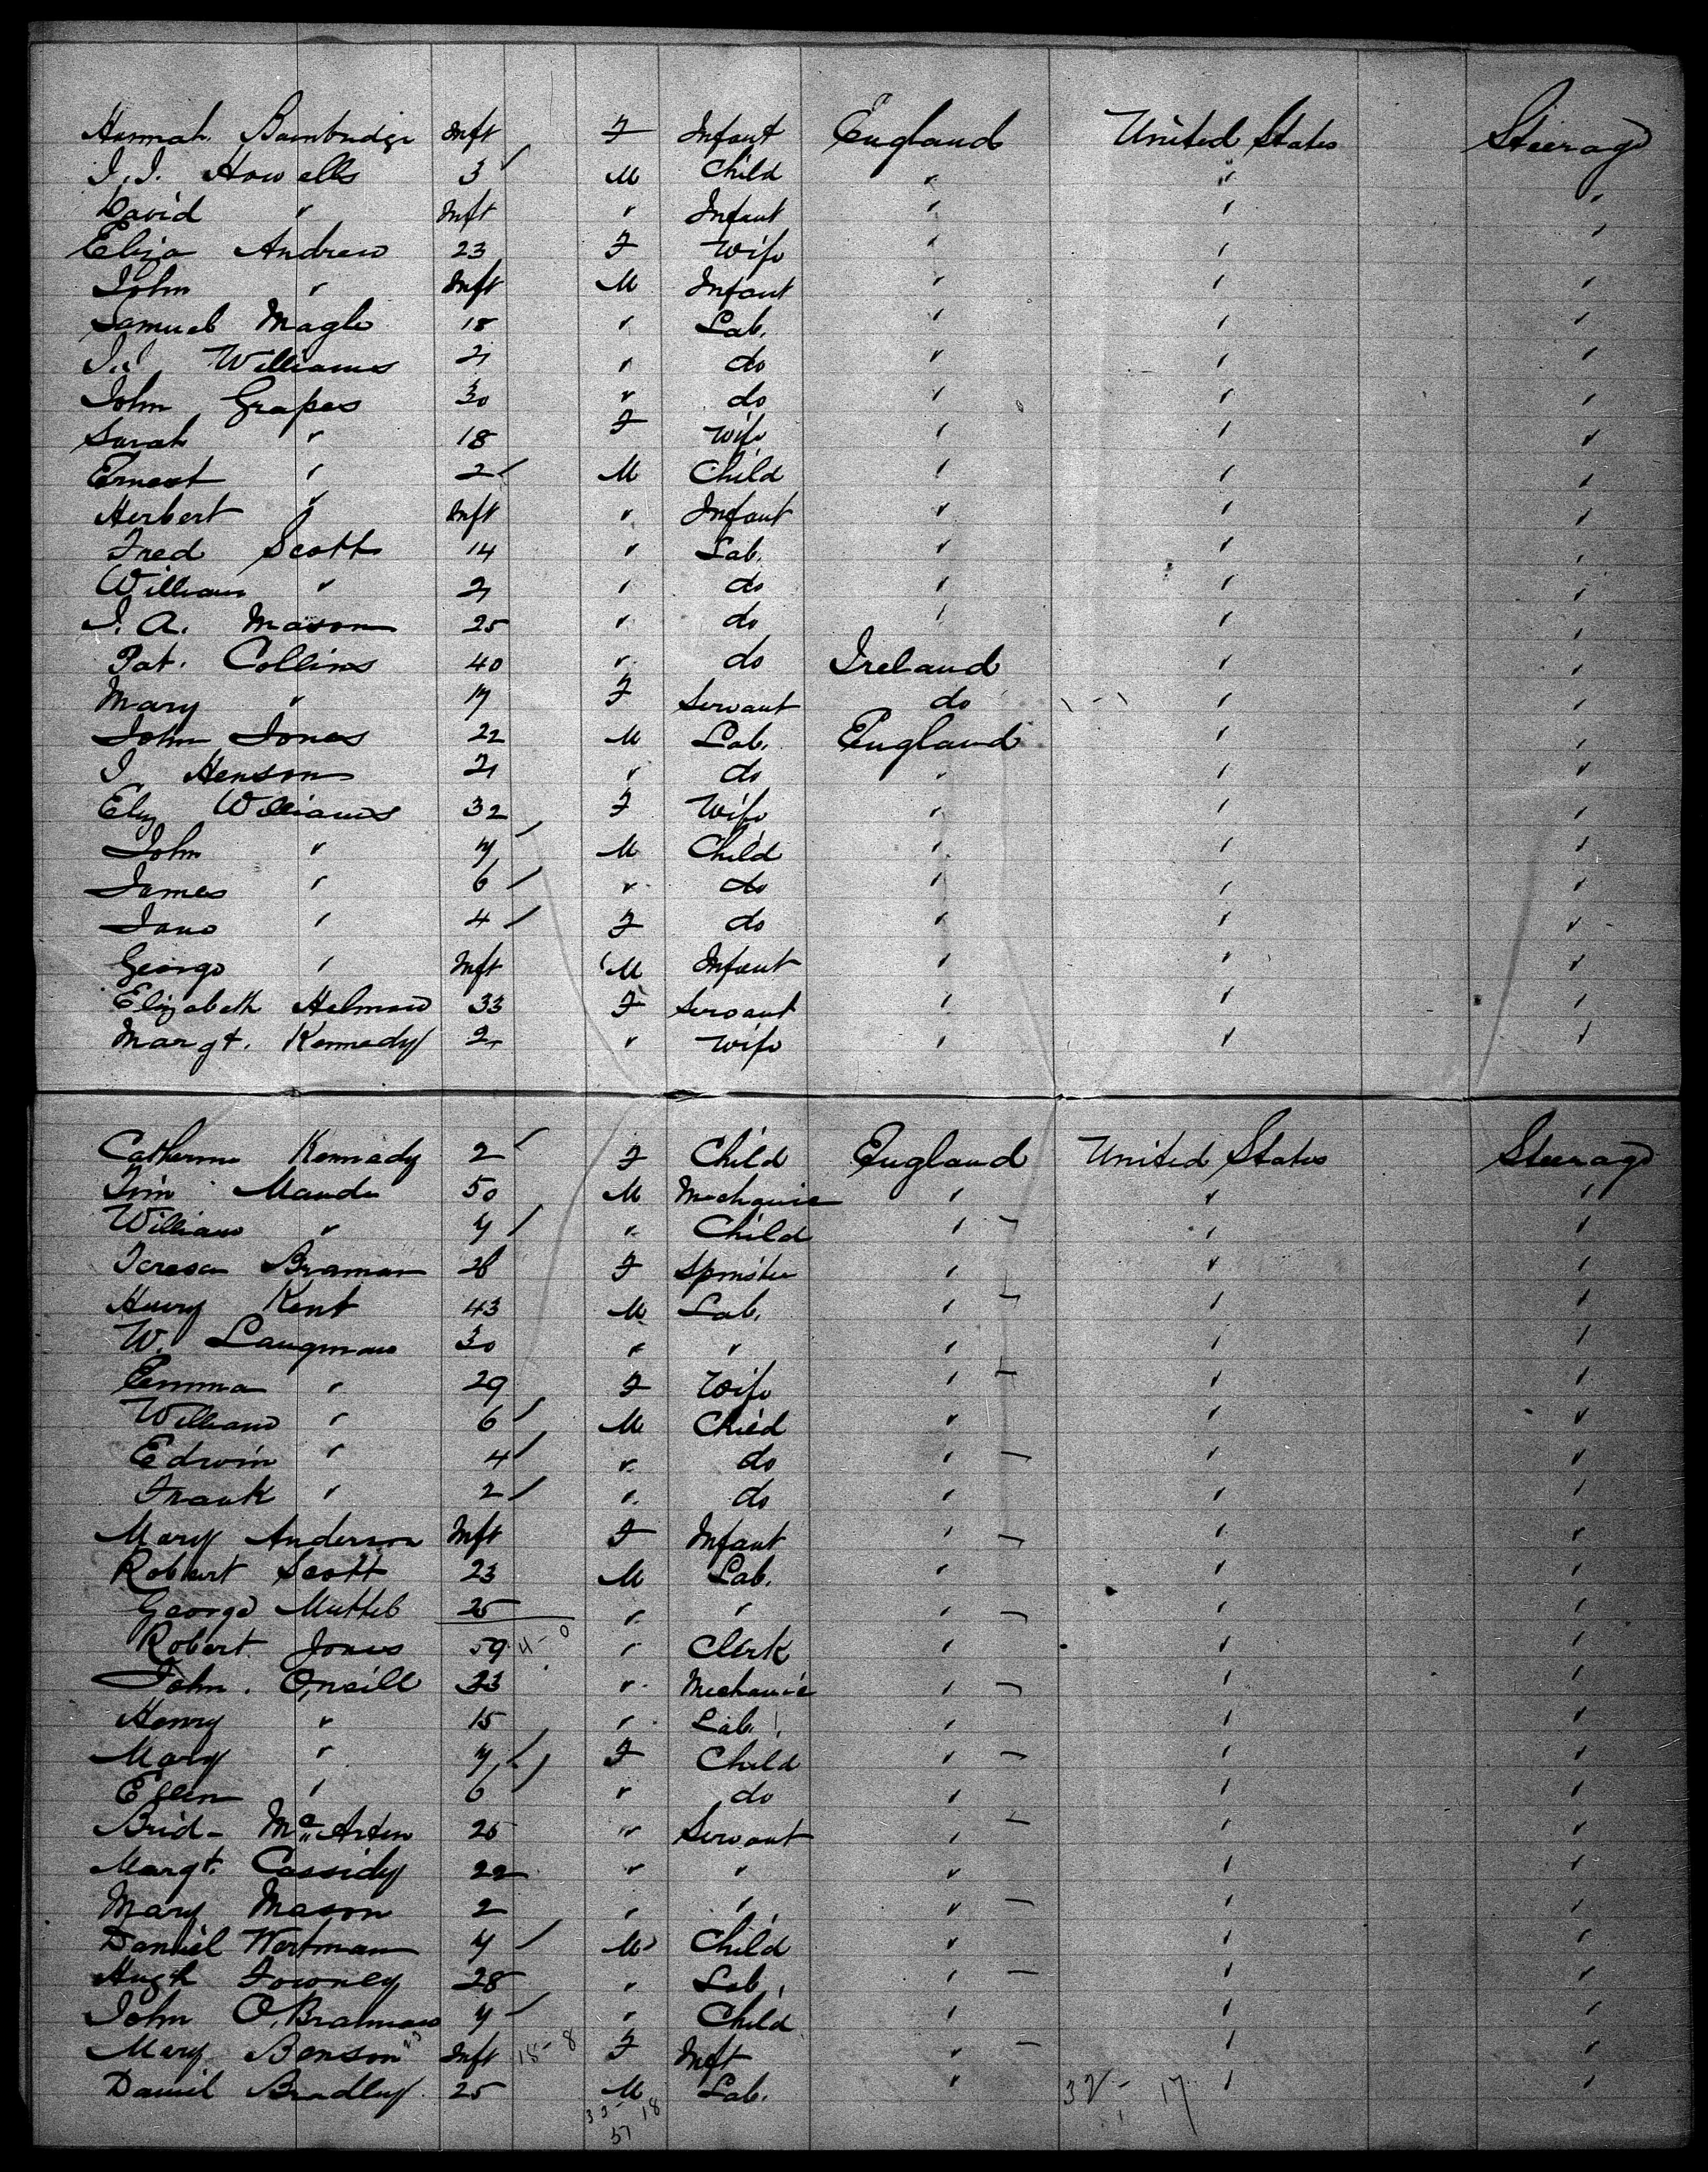 Hannah Bambridge Inft F Infant England United States Steerage
J. J. Howells 3 M Child " " "
David " Inft " Infant " " "
Eliza Andrew 23 F Wife " "
John " Inft M Infant " " "
Samuel 18 " Lab. " " "
Williams 21 " do " " "
John Grapes 30 " do " " "
Sarah " 18 F Wife " " "
Ernest " 2 M Child " " "
Herbert " Inft " Infant " " "
Fred Scott 14 " Lab. " " "
William " 21 " do " " "
J. A. Mason 25 " do " " "
Pat. Collins 40 " do Ireland " "
Mary " 17 F Servant do " "
John Jones 22 M Lab. England " "
J Henson 21 " do " " "
Eliz Williams 32 F Wife " " "
John " 7 M Child " " "
James " 6 " do " " "
Jane " 4 F do " " "
George " Inft M Infant " " "
Elizabeth 33 F Servant " " "
Margt. Kennedy " Wife " " "
Catherine Kennedy 2 F Child England United States Steerage
Maude 50 M Mechanic " " "
William " 7 " Child " " "
Teresa 28 F Spinster " " "
Henry Kent 43 M Lab. " " "
W. Langman 30 " " " " "
Emma " 29 F Wife " " "
William " 6 M Child " " "
Edwin " 4 " do " " "
Frank " 2 " do " " "
Mary Anderson Inft F Infant " " "
Robert Scott 23 M Lab. " " "
George 25 " " " " "
Robert Jones 59 " Clerk " " "
John O'neill 33 " Mechanic " " "
Henry " 15 " Lab. " " "
Mary " 7 F Child " " "
Ellen " 6 " do " " "
Brid- 25 " Servant " " "
Margt. Cassidy 22 " " " " "
Mary Mason 2 " " " " "
Daniel Wortman 7 M Child " " "
Hugh 28 " Lab. " " "
John 7 " Child " " "
Mary Benson Inft 18-8 F Inft " " "
Daniel Bradley 25 M Lab. " " "